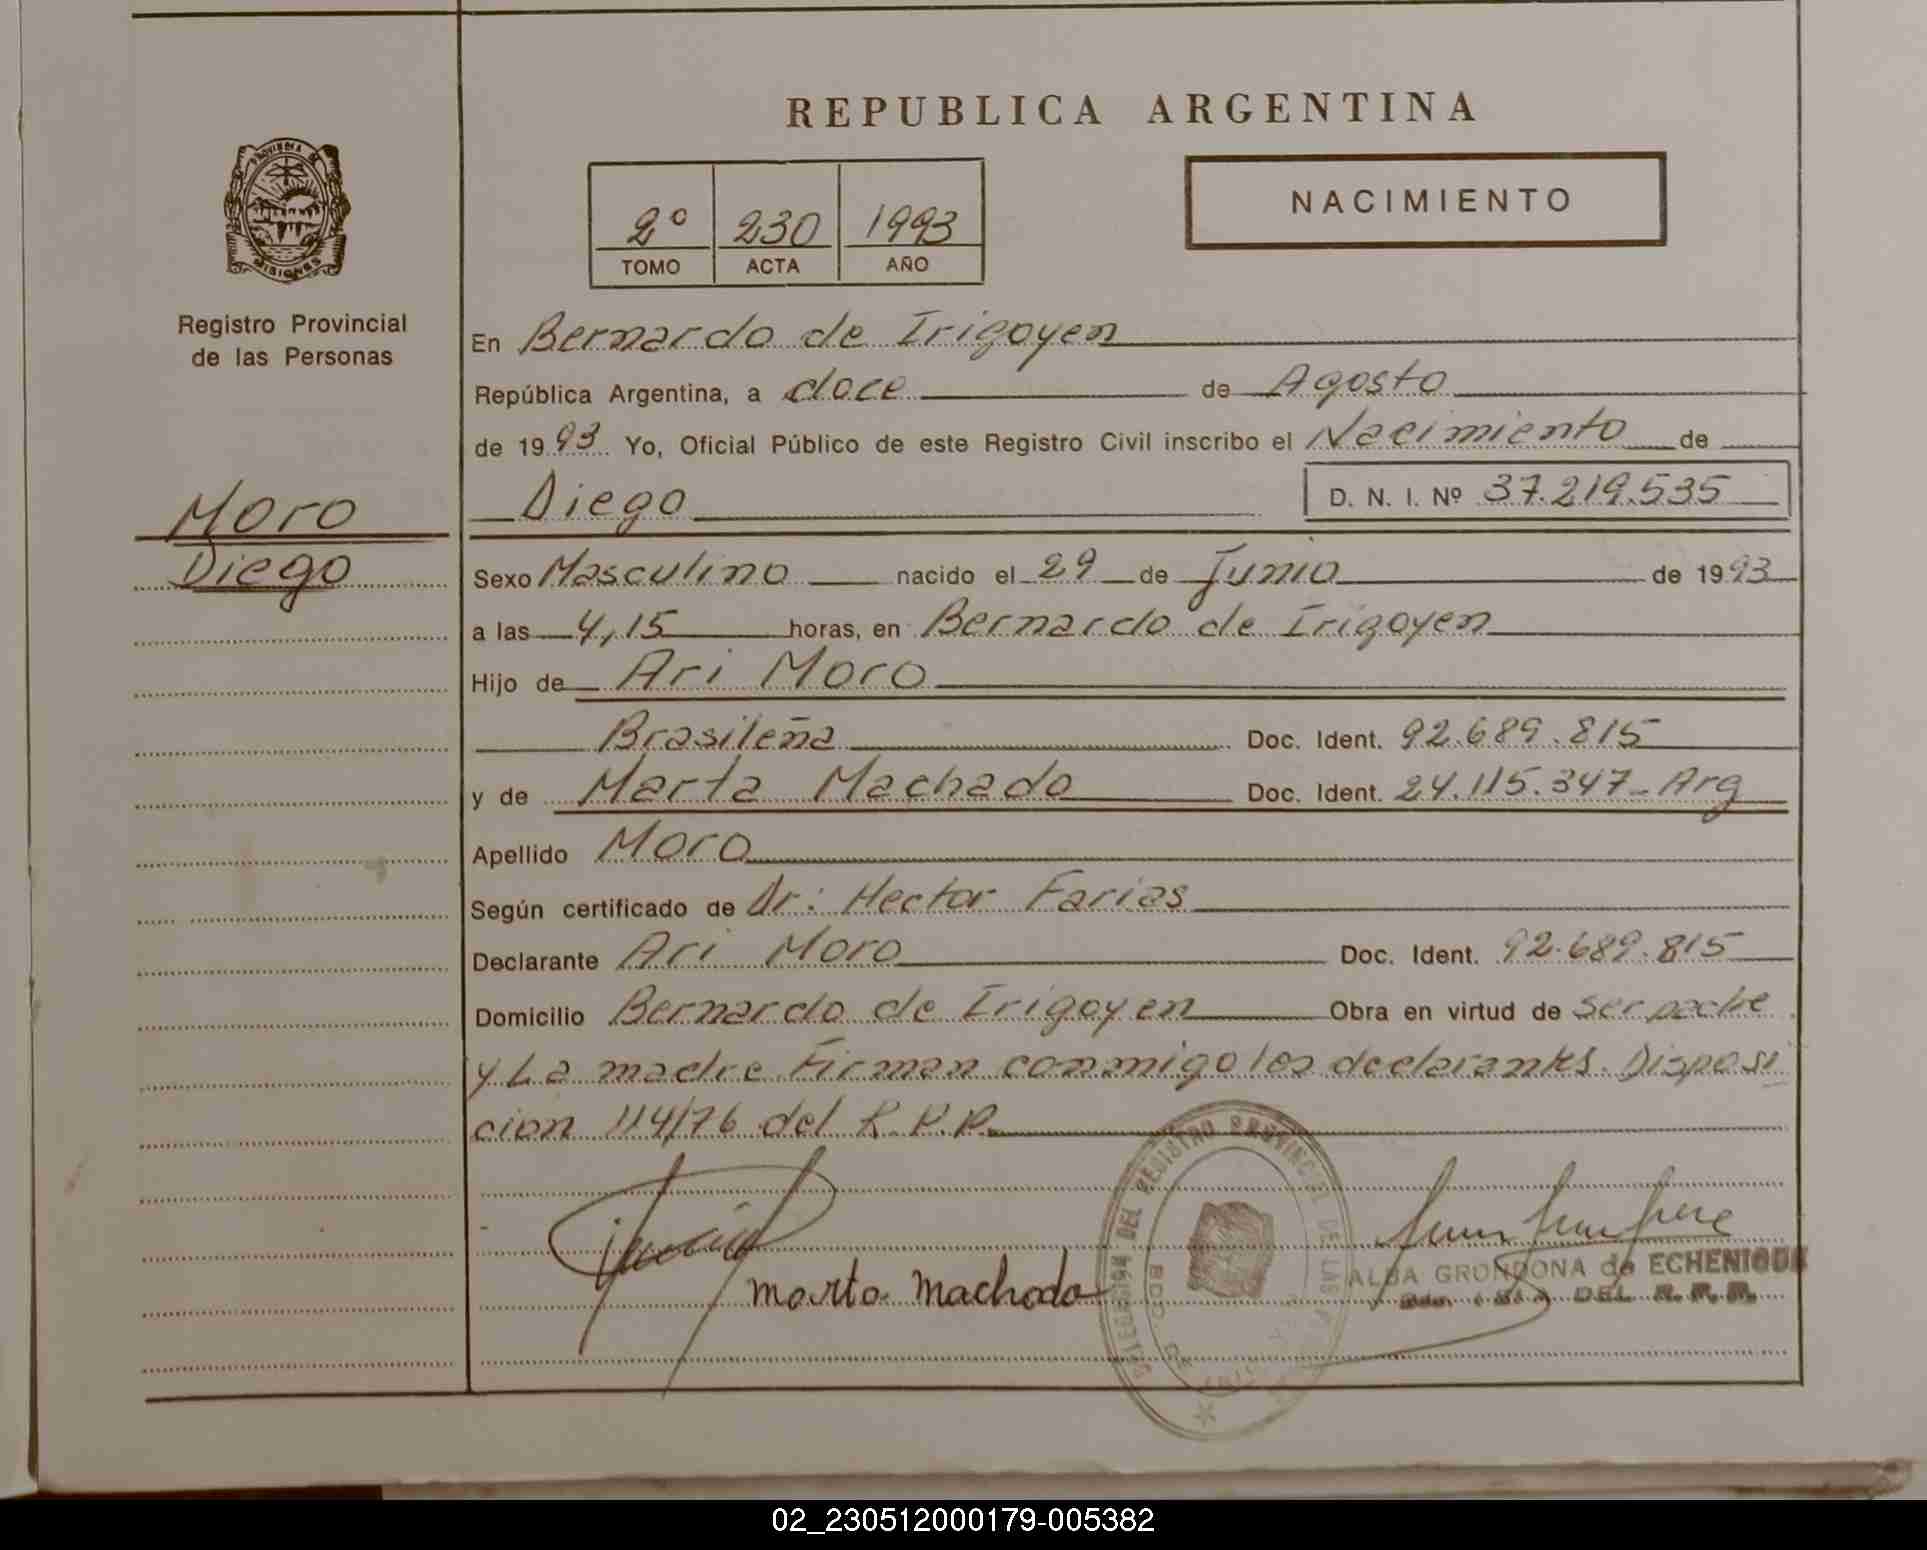 REPUBLICA ARGENTINA
PROVINCIA DE MISIONES
2º 230 1993
TOMO ACTA AÑO
NACIMIENTO
Registro Provincial
de las Personas
Moro
Diego
En Bernardo de Irigoyen
República Argentina, a doce de Agosto
de 1993 Yo, Oficial Público de este Registro Civil inscribo el Nacimiento de
Diego D. N. I. Nº 37.219.535
Sexo Masculino nacido el 29 de Junio de 1993
a las 4,15 horas, en Bernardo de Irigoyen
Hijo de Ari Moro
Brasileña Doc. Ident. 92.689.815
y de Marta Machado Doc. Ident. 24.115.347-Arg
Apellido Moro
Según certificado de Dr: Hector Farias
Declarante Ari Moro Doc. Ident. 92.689.815
Domicilio Bernardo de Irigoyen Obra en virtud de ser padre
y La madre Firman conmigo los declarantes. Disposi
cion 114/76 del R.P.P.
marta machado
DELEGACION DEL REGISTRO PROVINCIAL DE LAS
BDO. DE
ALBA GRONDONA de ECHENIQUE
DEL R.P.P.
02_230512000179-005382